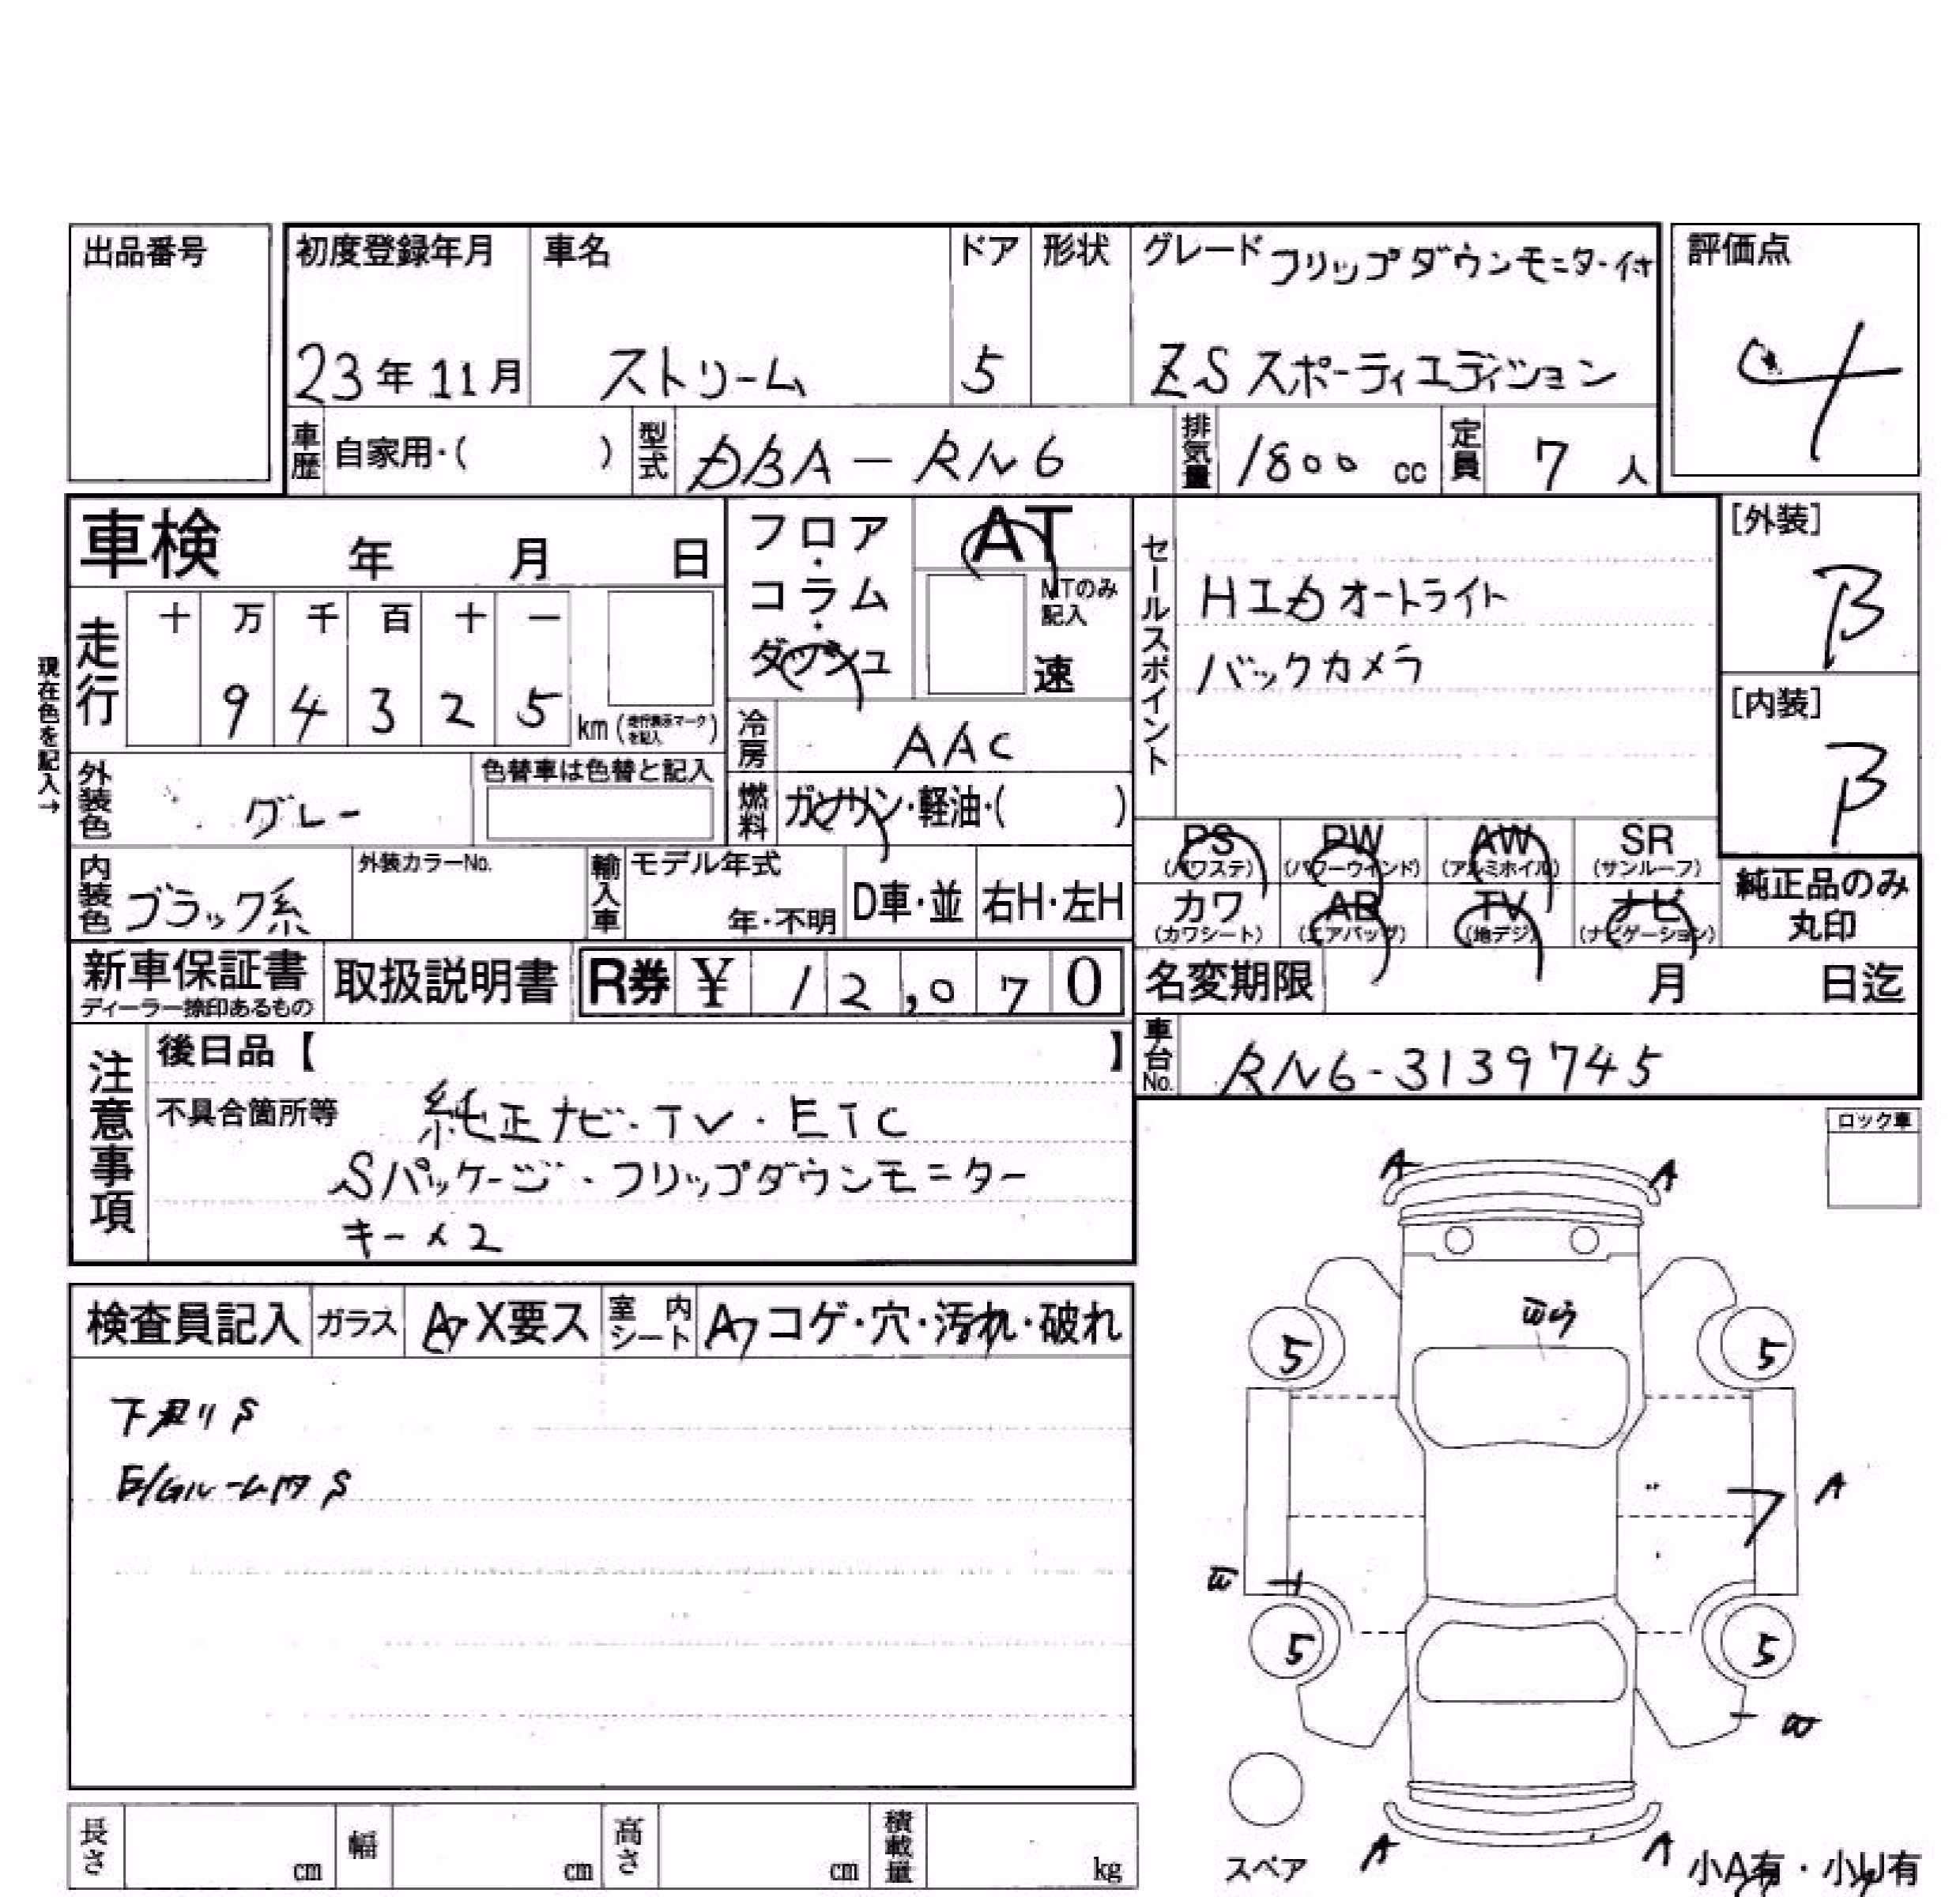 出品番号
初度登録年月 車名 ドア 形状 グレード フリップダウンモニター付 評価点
23年11月 ストリーム 5 ZSスポーティエディション 4
車歴 自家用・( ) 型式 DBA-RN6 排気量 1800cc 定員 7人
車検 年 月 日
フロア・コラム・ダッシュ
AT
MTのみ記入
速
セールスポイント
HID オートライト
バックカメラ
[外装]
B
[内装]
B
現在色を記入→
走行 十 万 千 百 十 一
9 4 3 2 5 km (走行表示マークを記入)
冷房 AAC
外装色 グレー 色替車は色替と記入
燃料 ガソリン・軽油・( )
PS (パワステ) PW (パワーウインド) AW (アルミホイル) SR (サンルーフ)
カワ (カワシート) AB (エアバッグ) TV (地デジ) ナビ (ナビゲーション)
純正品のみ丸印
内装色 ブラック系 外装カラーNo. 輸入車 モデル年式 年・不明 D車・並 右H・左H
新車保証書 ディーラー捺印あるもの 取扱説明書 R券 ¥ 12,070
名変期限 月 日迄
車台No. RN6-3139745
注意事項
後日品【 】
不具合箇所等 純正ナビ・TV・ETC
Sパッケージ・フリップダウンモニター
キー×2
ロック車
検査員記入 ガラス A・X要ス 室内シート A・コゲ・穴・汚れ・破れ
下廻りS
E/Gルーム内S
A A
5 5
A
5 5
A A
スペア
小A有・小U有
長さ cm 幅 cm 高さ cm 積載量 kg